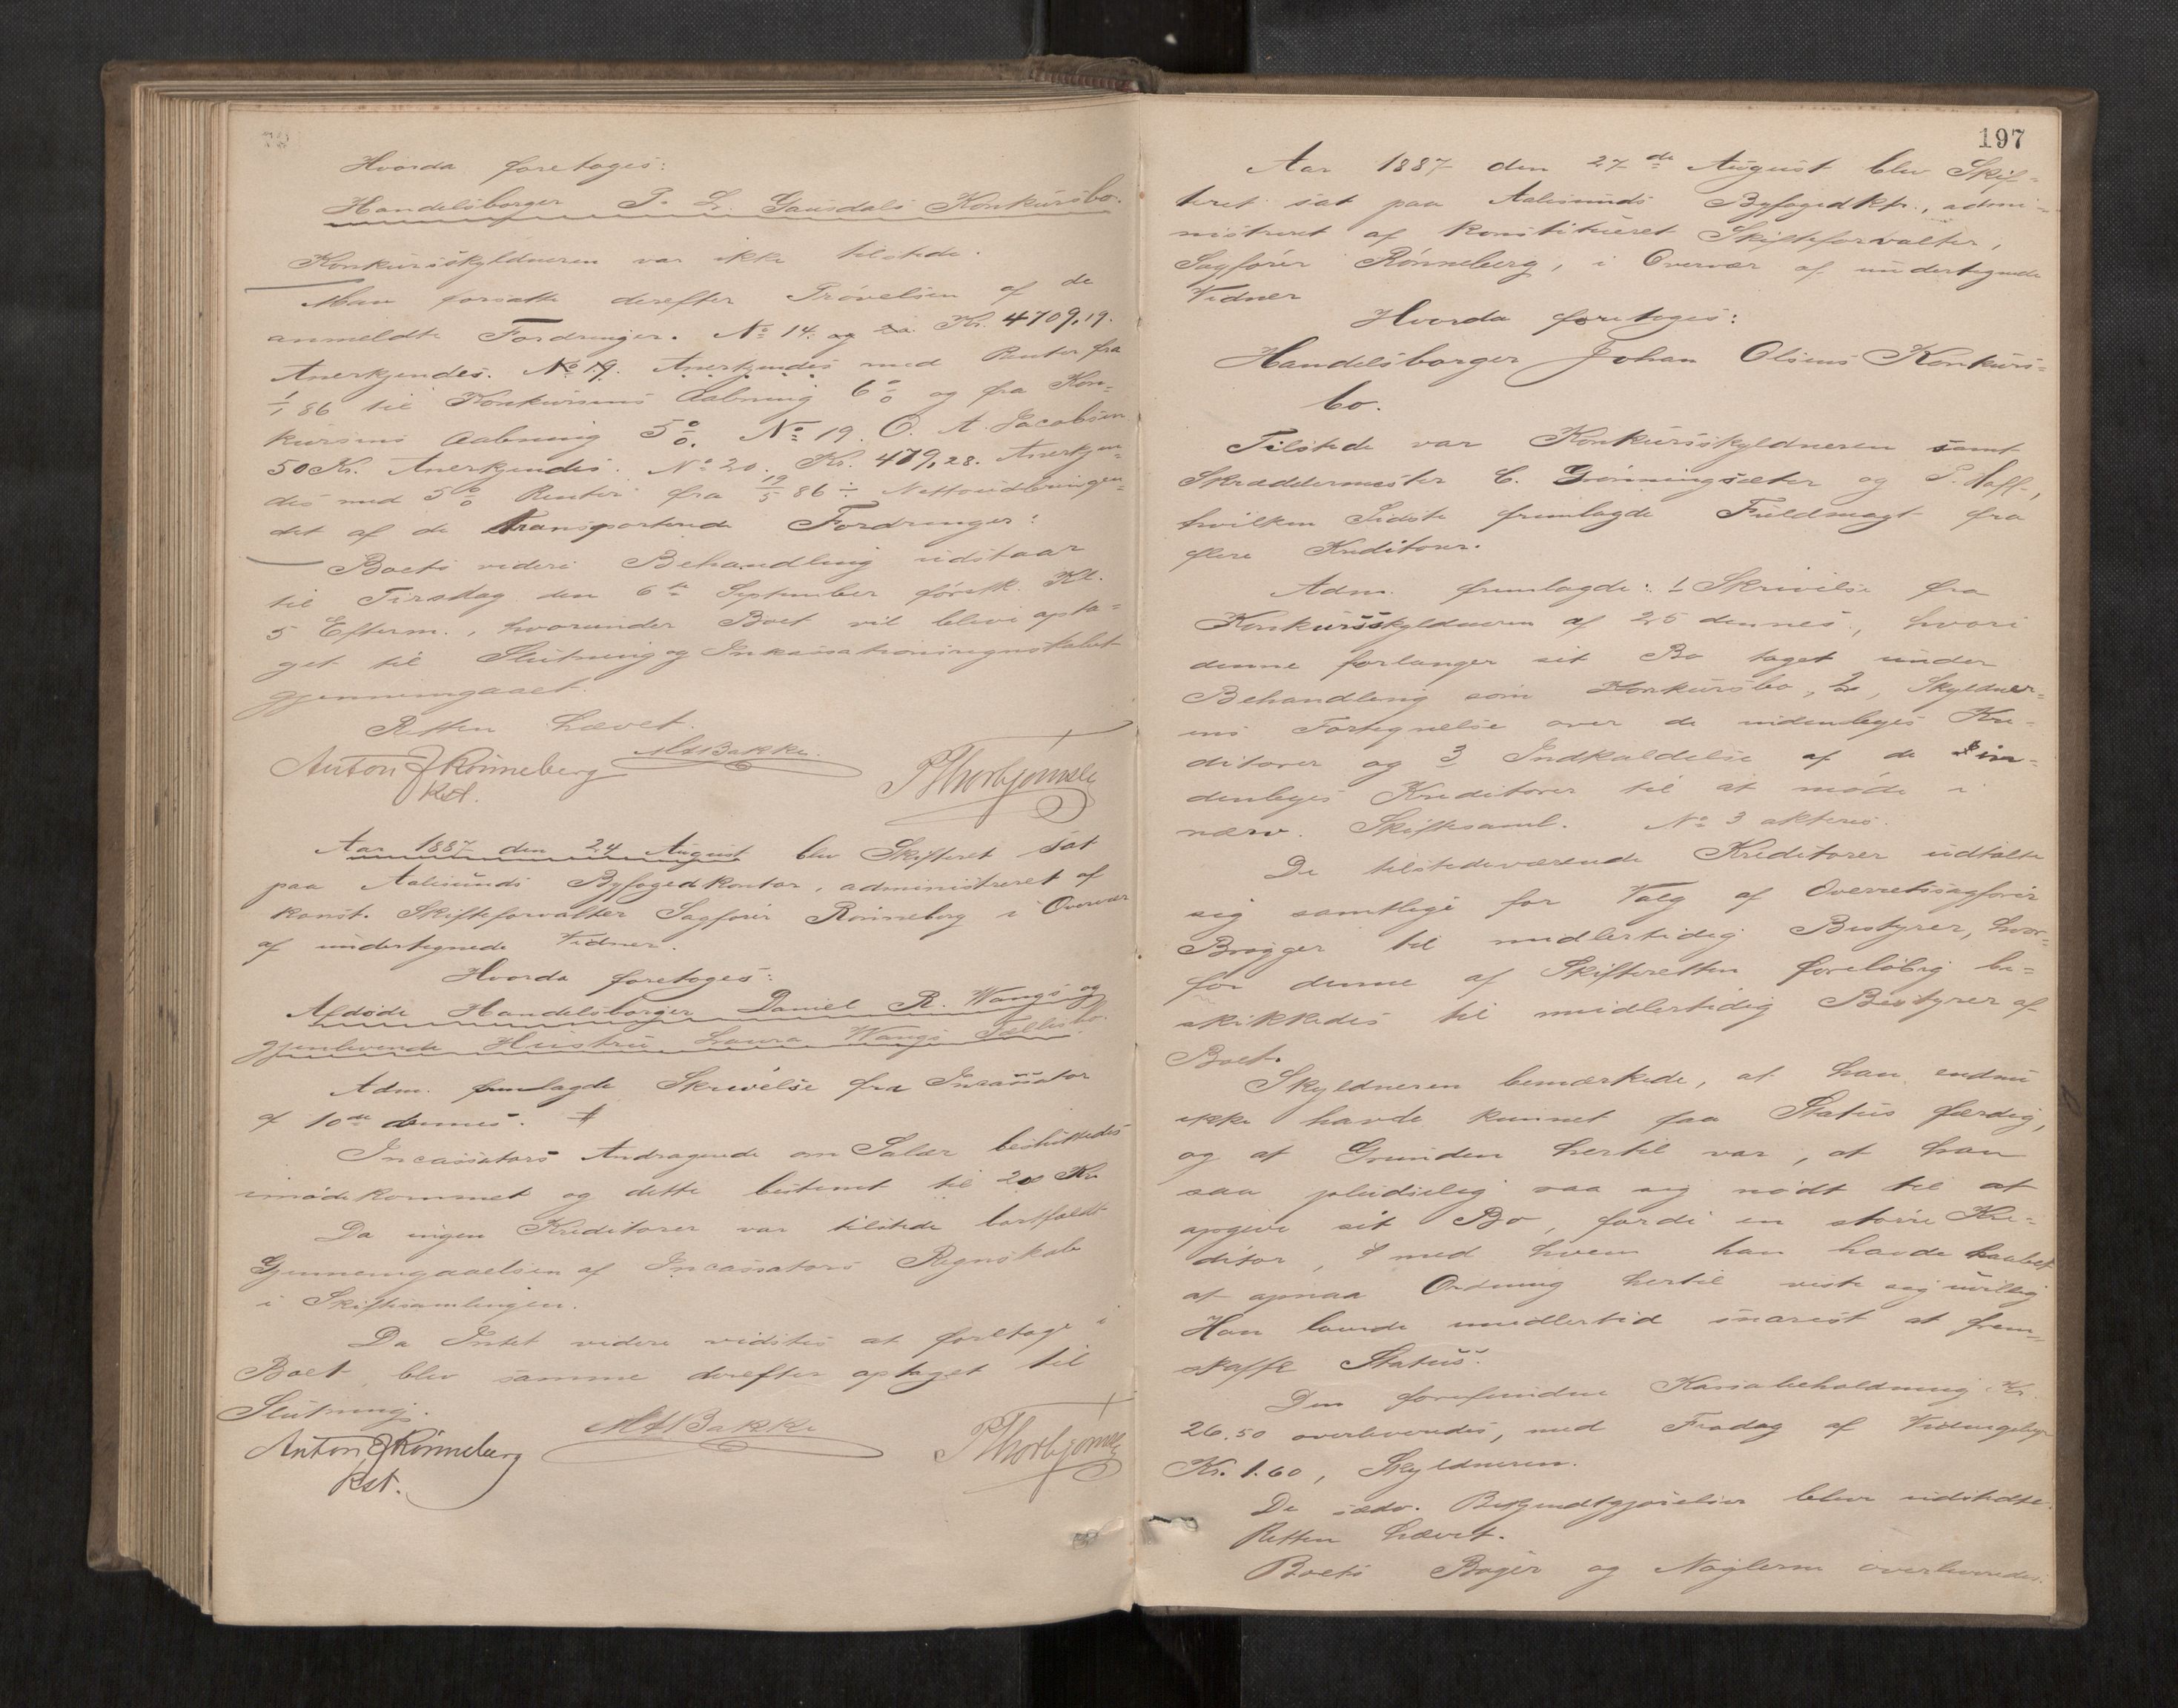 Hvorda foretoges:
Handelsborger P. L. Gausdals Konkursbo.
Konkursskyldneren var ikke tilstede.
Man forsatte derefter Prøvelsen af de
anmeldte Fordringer. No 14. og Kr. 4709,19.
Anerkjendes. No 19. Anerkjendes med Renter fra
1/1 86 til Konkursens Aabning 6 % og fra Kon-
kursens Aabning 5 %. No 19. O. A. Jacobsen
50 Kr. Anerkjendes. No 20. Kr. 479,28. Anerkjen-
des med 5 % Renter fra 19/5 86 ÷ Nettoudbringen-
det af de transporterede Fordringer:
Boets videre Behandling udstaar
til Tirsdag den 6te September førstk. Kl.
5 Efterm., hvorunder Boet vil blive opta-
get til Slutning og Inkassationsregnskabet
gjennemgaaet.
Retten hævet.
Anton J Rønneberg MABakke. PThorbjørnsen
kst.
Aar 1887 den 24 August blev Skifteret sat
paa Aalesunds Byfogedkontor, administreret af
konst. Skifteforvalter Sagfører Rønneberg i Overvær
af undertegnede Vidner.
Hvorda foretoges:
Afdøde Handelsborger Daniel R. Wangs og
gjenlevende Hustru Laura Wangs Fællesbo.
Adm. fremlagde Skrivelse fra Incassator
af 10de dennes. #
Incassators Andragende om Salær besluttedes
imødekommet og dette bestemt til 20 Kr.
Da ingen Kreditorer var tilstede bortfaldt
Gjennemgaaelsen af Incassators Regnskab
i Skiftesamlingen.
Da Intet videre vidstes at foretage i
Boet blev samme derefter optaget til
Slutning.
Anton J Rønneberg MABakke PThorbjørnsen
kst.
197
Aar 1887 den 27de August blev Skif-
teret sat paa Aalesunds Byfogedktr., admi-
nistreret af konstitueret Skifteforvalter,
Sagfører Rønneberg, i Overvær af undertegnede
Vidner
Hvorda foretoges:
Handelsborger Johan Olsens Konkurs-
bo.
Tilstede var Konkursskyldneren samt
Skræddermester C. Grønningsæter og P. Hoff,
hvilken Sidste fremlagde Fuldmagt fra
flere Kreditorer.
Adm. fremlagde: 1 Skrivelse fra
Konkursskyldneren af 25 dennes, hvori
denne forlanger sit Bo taget under
Behandling som Konkursbo, 2, Skyldner-
ens Fortegnelse over de indenbyes Kre-
ditorer og 3 Indkaldelse af de in-
denbyes Kreditorer til at møde i
nærv. Skiftesaml. No 3 akteres.
De tilstedeværende Kreditorer udtalte
sig samtlige for Valg af Overretssagfører
Brøgger til midlertidig Bestyrer, hvor-
for denne af Skifteretten foreløbig be-
skikkedes til midlertidig Bestyrer af
Boet.
Skyldneren bemærkede, at han endnu
ikke havde kunnet faa Status færdig,
og at Grunden hertil var, at han
saa pludselig saa sig nødt til at
opgive sit Bo, fordi en større Kre-
ditor, med hvem han havde haabet
at opnaa Ordning hertil viste sig uvillig
Han lovede imidlertid snarest at frem-
skaffe Status.
Den forefundne Kassabeholdning Kr.
26.50 overleveredes, med Fradrag af Vidnegebyr
Kr. 1.60, Skyldneren.
De sædv. Bekjendtgjørelser blev udstedte.
Retten hævet.
Boets Bøger og Nøglerne overleveredes